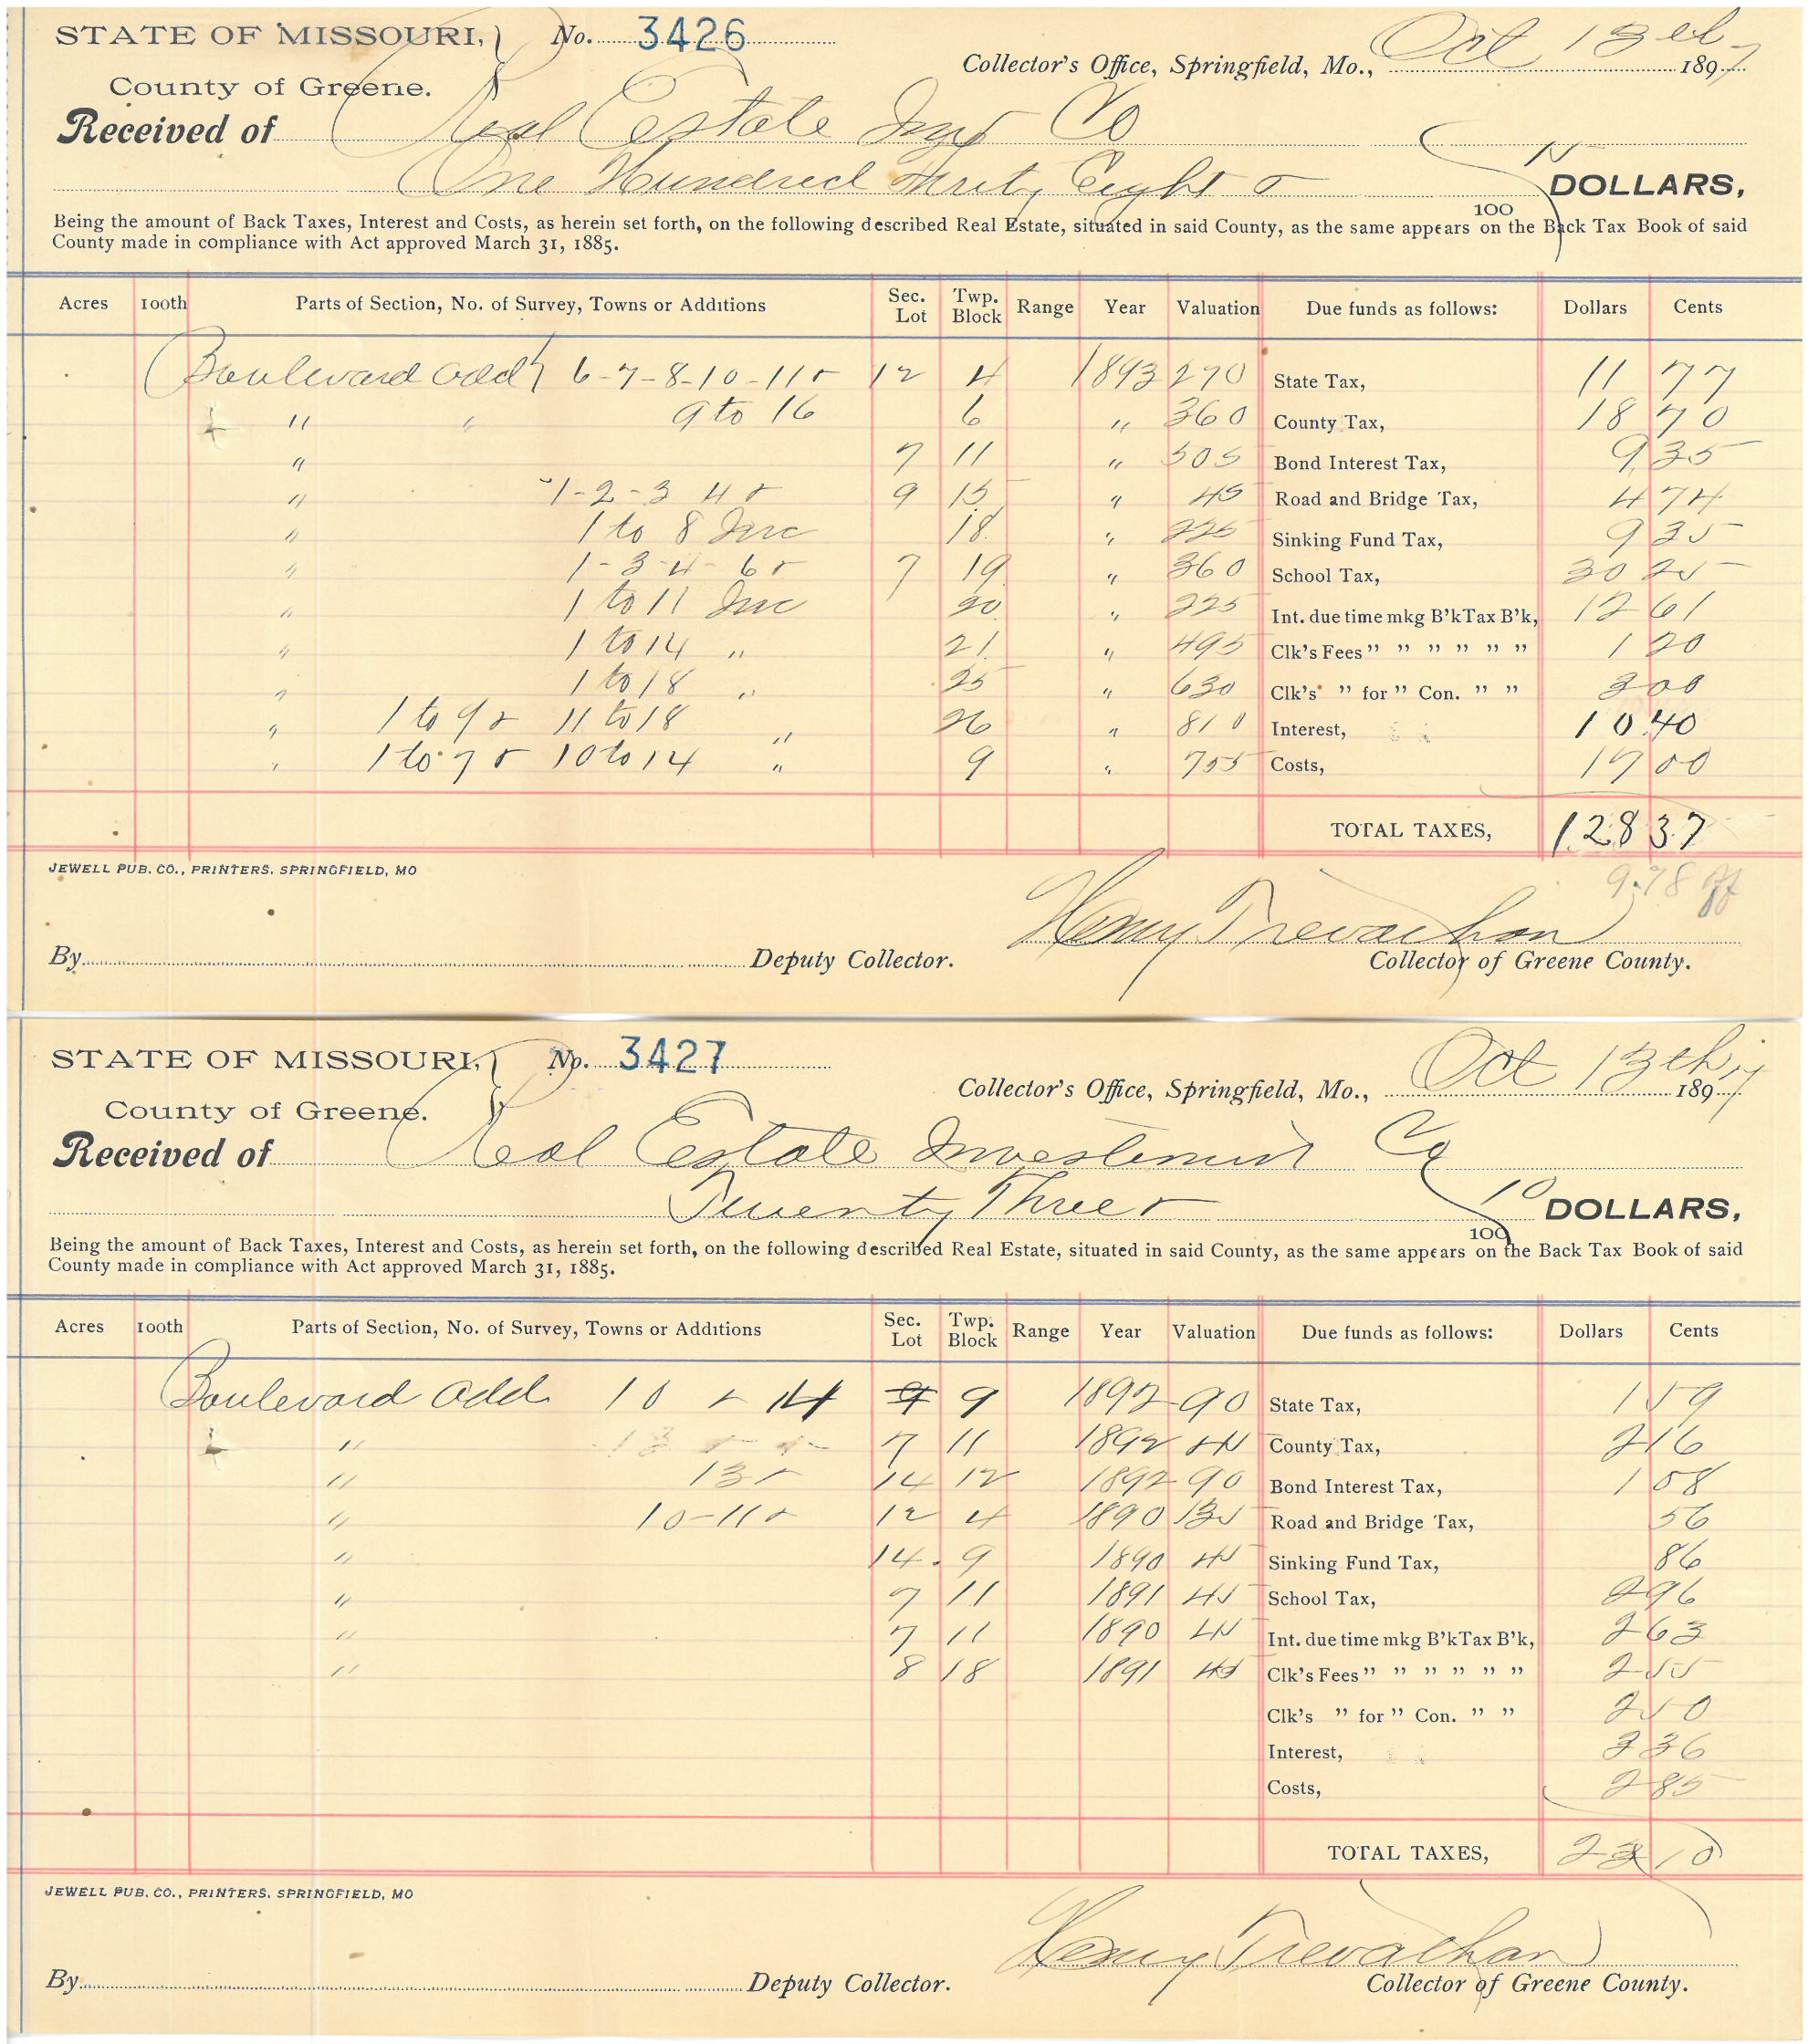 STATE OF MISSOURI, No. 3426
Collector's Office, Springfield, Mo., Oct 13th 1897
County of Greene.
Received of Real Estate Imp Co
One Hundred Thrity Eight & 15/100 DOLLARS,
Being the amount of Back Taxes, Interest and Costs, as herein set forth, on the following described Real Estate, situated in said County, as the same appears on the Back Tax Book of said
County made in compliance with Act approved March 31, 1885.
Acres 100th Parts of Section, No. of Survey, Towns or Additions Sec. Lot Twp. Block Range Year Valuation Due funds as follows: Dollars Cents
Boulevard add 6-7-8-10-11 & 12 4 1893 270 State Tax, 11 77
" " 9 to 16 6 " 360 County Tax, 18 70
" 7 11 " 505 Bond Interest Tax, 9 35
" 1-2-3 4 & 9 15 " 45 Road and Bridge Tax, 4 74
" 1 to 8 Inc 18 " 225 Sinking Fund Tax, 9 35
" 1-3-4-6 & 7 19 " 360 School Tax, 30 25
" 1 to 11 Inc 20 " 225 Int. due time mkg B'kTax B'k, 12 61
" 1 to 14 " 21 " 495 Clk's Fees " " " " " " 1 20
" 1 to 18 " 25 " 630 Clk's " for " Con. " " 3 00
" 1 to 9 & 11 to 18 " 26 " 810 Interest, 10 40
" 1 to 7 & 10 to 14 " 9 " 755 Costs, 17 00
TOTAL TAXES, 128 37
JEWELL PUB. CO., PRINTERS, SPRINGFIELD, MO
9.78 off
Henry Trevathan
By Deputy Collector. Collector of Greene County.
STATE OF MISSOURI, No. 3427
Collector's Office, Springfield, Mo., Oct 13th 1897
County of Greene.
Received of Real Estate Investment Co
Twenty Three & 10/100 DOLLARS,
Being the amount of Back Taxes, Interest and Costs, as herein set forth, on the following described Real Estate, situated in said County, as the same appears on the Back Tax Book of said
County made in compliance with Act approved March 31, 1885.
Acres 100th Parts of Section, No. of Survey, Towns or Additions Sec. Lot Twp. Block Range Year Valuation Due funds as follows: Dollars Cents
Boulevard add 10 & 14 9 1892 90 State Tax, 1 59
" 7 11 1892 45 County Tax, 2 16
" 13 & 14 12 1892 90 Bond Interest Tax, 1 08
" 10-11 & 12 4 1890 135 Road and Bridge Tax, 56
" 14 9 1890 45 Sinking Fund Tax, 86
" 7 11 1891 45 School Tax, 2 96
" 7 11 1890 45 Int. due time mkg B'kTax B'k, 2 63
" 8 18 1891 45 Clk's Fees " " " " " " 2 55
Clk's " for " Con. " " 2 50
Interest, 3 36
Costs, 2 85
TOTAL TAXES, 23 10
JEWELL PUB. CO., PRINTERS, SPRINGFIELD, MO
Henry Trevathan
By Deputy Collector. Collector of Greene County.